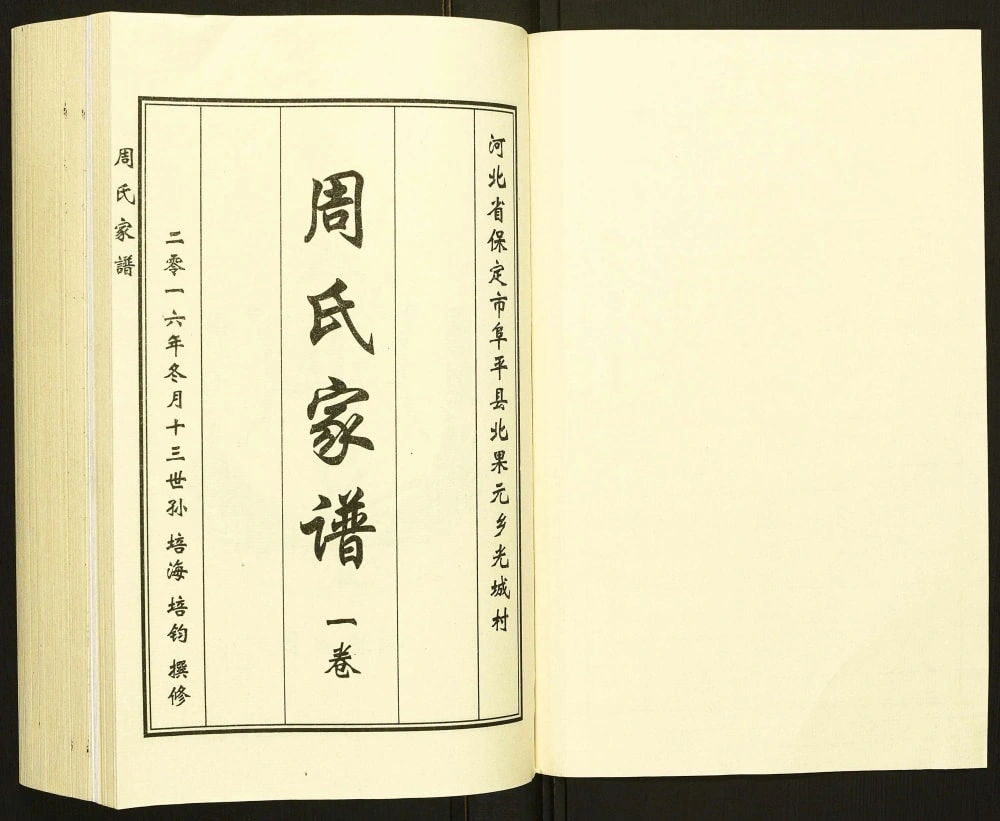 河北省保定市阜平县北果元乡光城村
周氏家谱 一卷
二零一六年冬月十三世孙 培海 培钧 撰修
周氏家譜